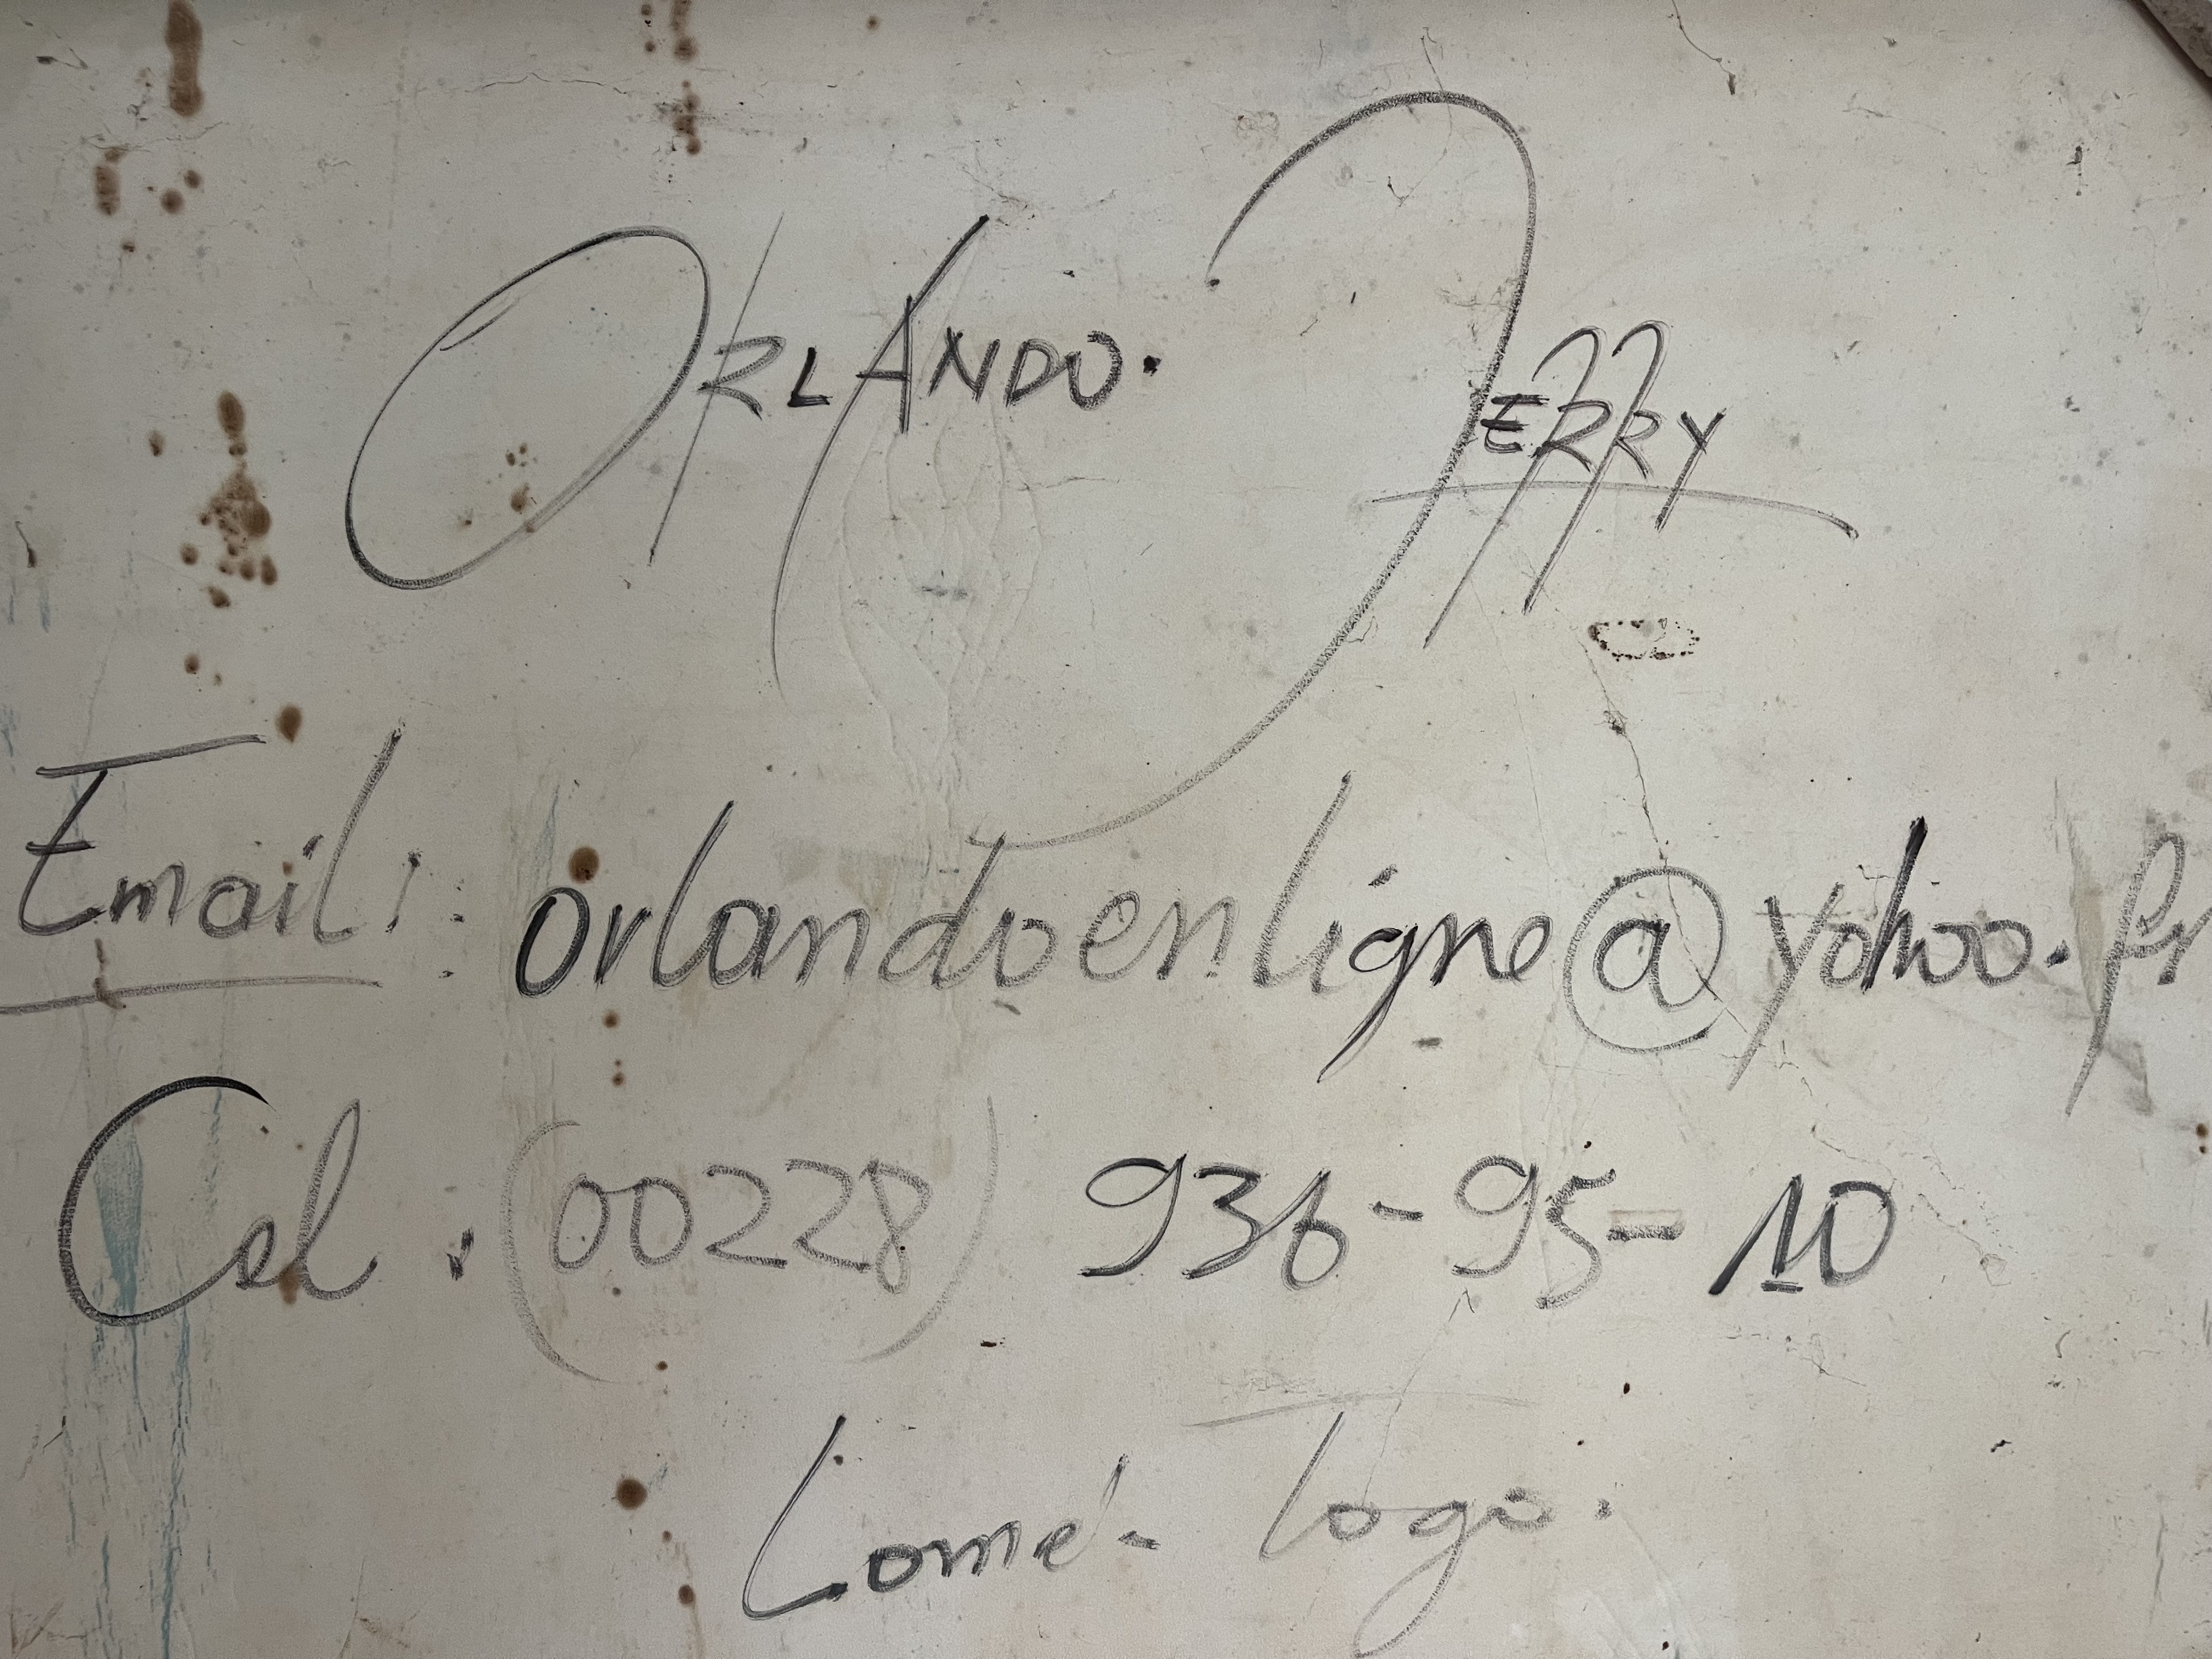 ORLANDO. JERRY
Email: orlandoenligne@yahoo.fr
Cel : (00228) 936-95-10
Lomé - Togo.